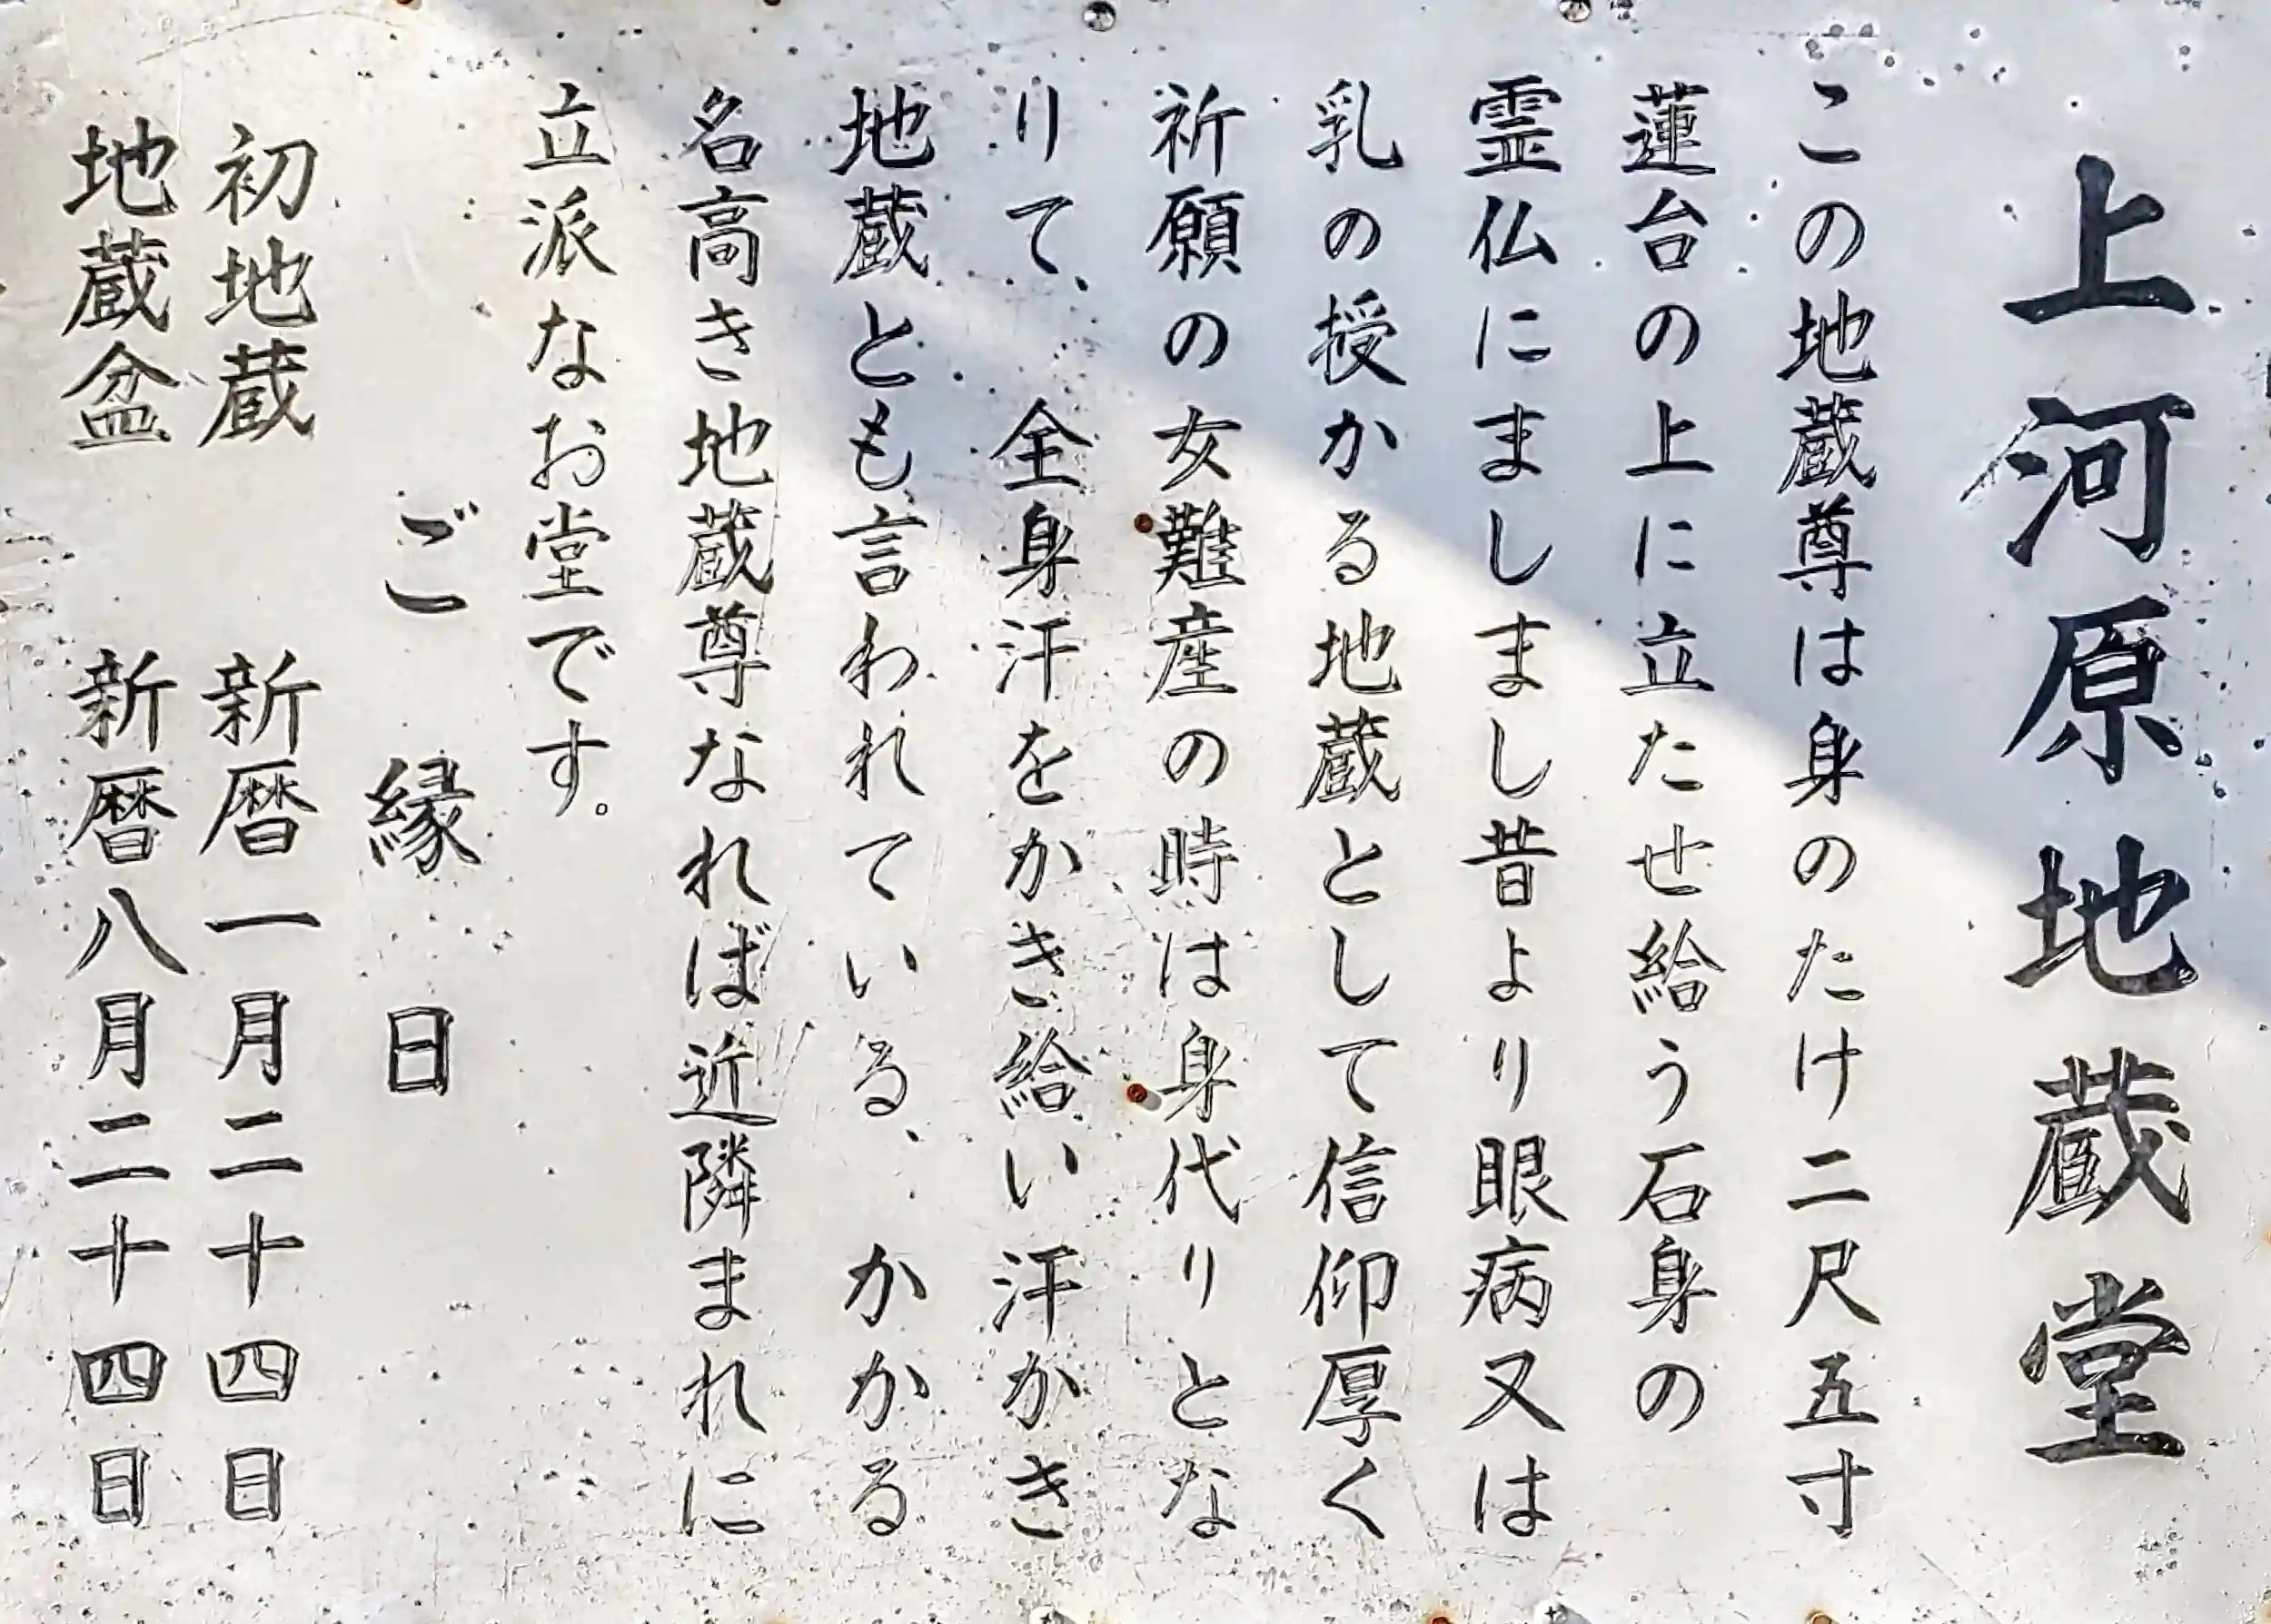 上河原地蔵堂
この地蔵尊は身のたけ二尺五寸
蓮台の上に立たせ給う石身の
霊仏にましまし昔より眼病又は
乳の授かる地蔵として信仰厚く
祈願の女難産の時は身代りとな
りて、全身汗をかき給い汗かき
地蔵とも言われている、かかる
名高き地蔵尊なれば近隣まれに
立派なお堂です。
ご縁日
初地蔵 新暦一月二十四日
地蔵盆 新暦八月二十四日